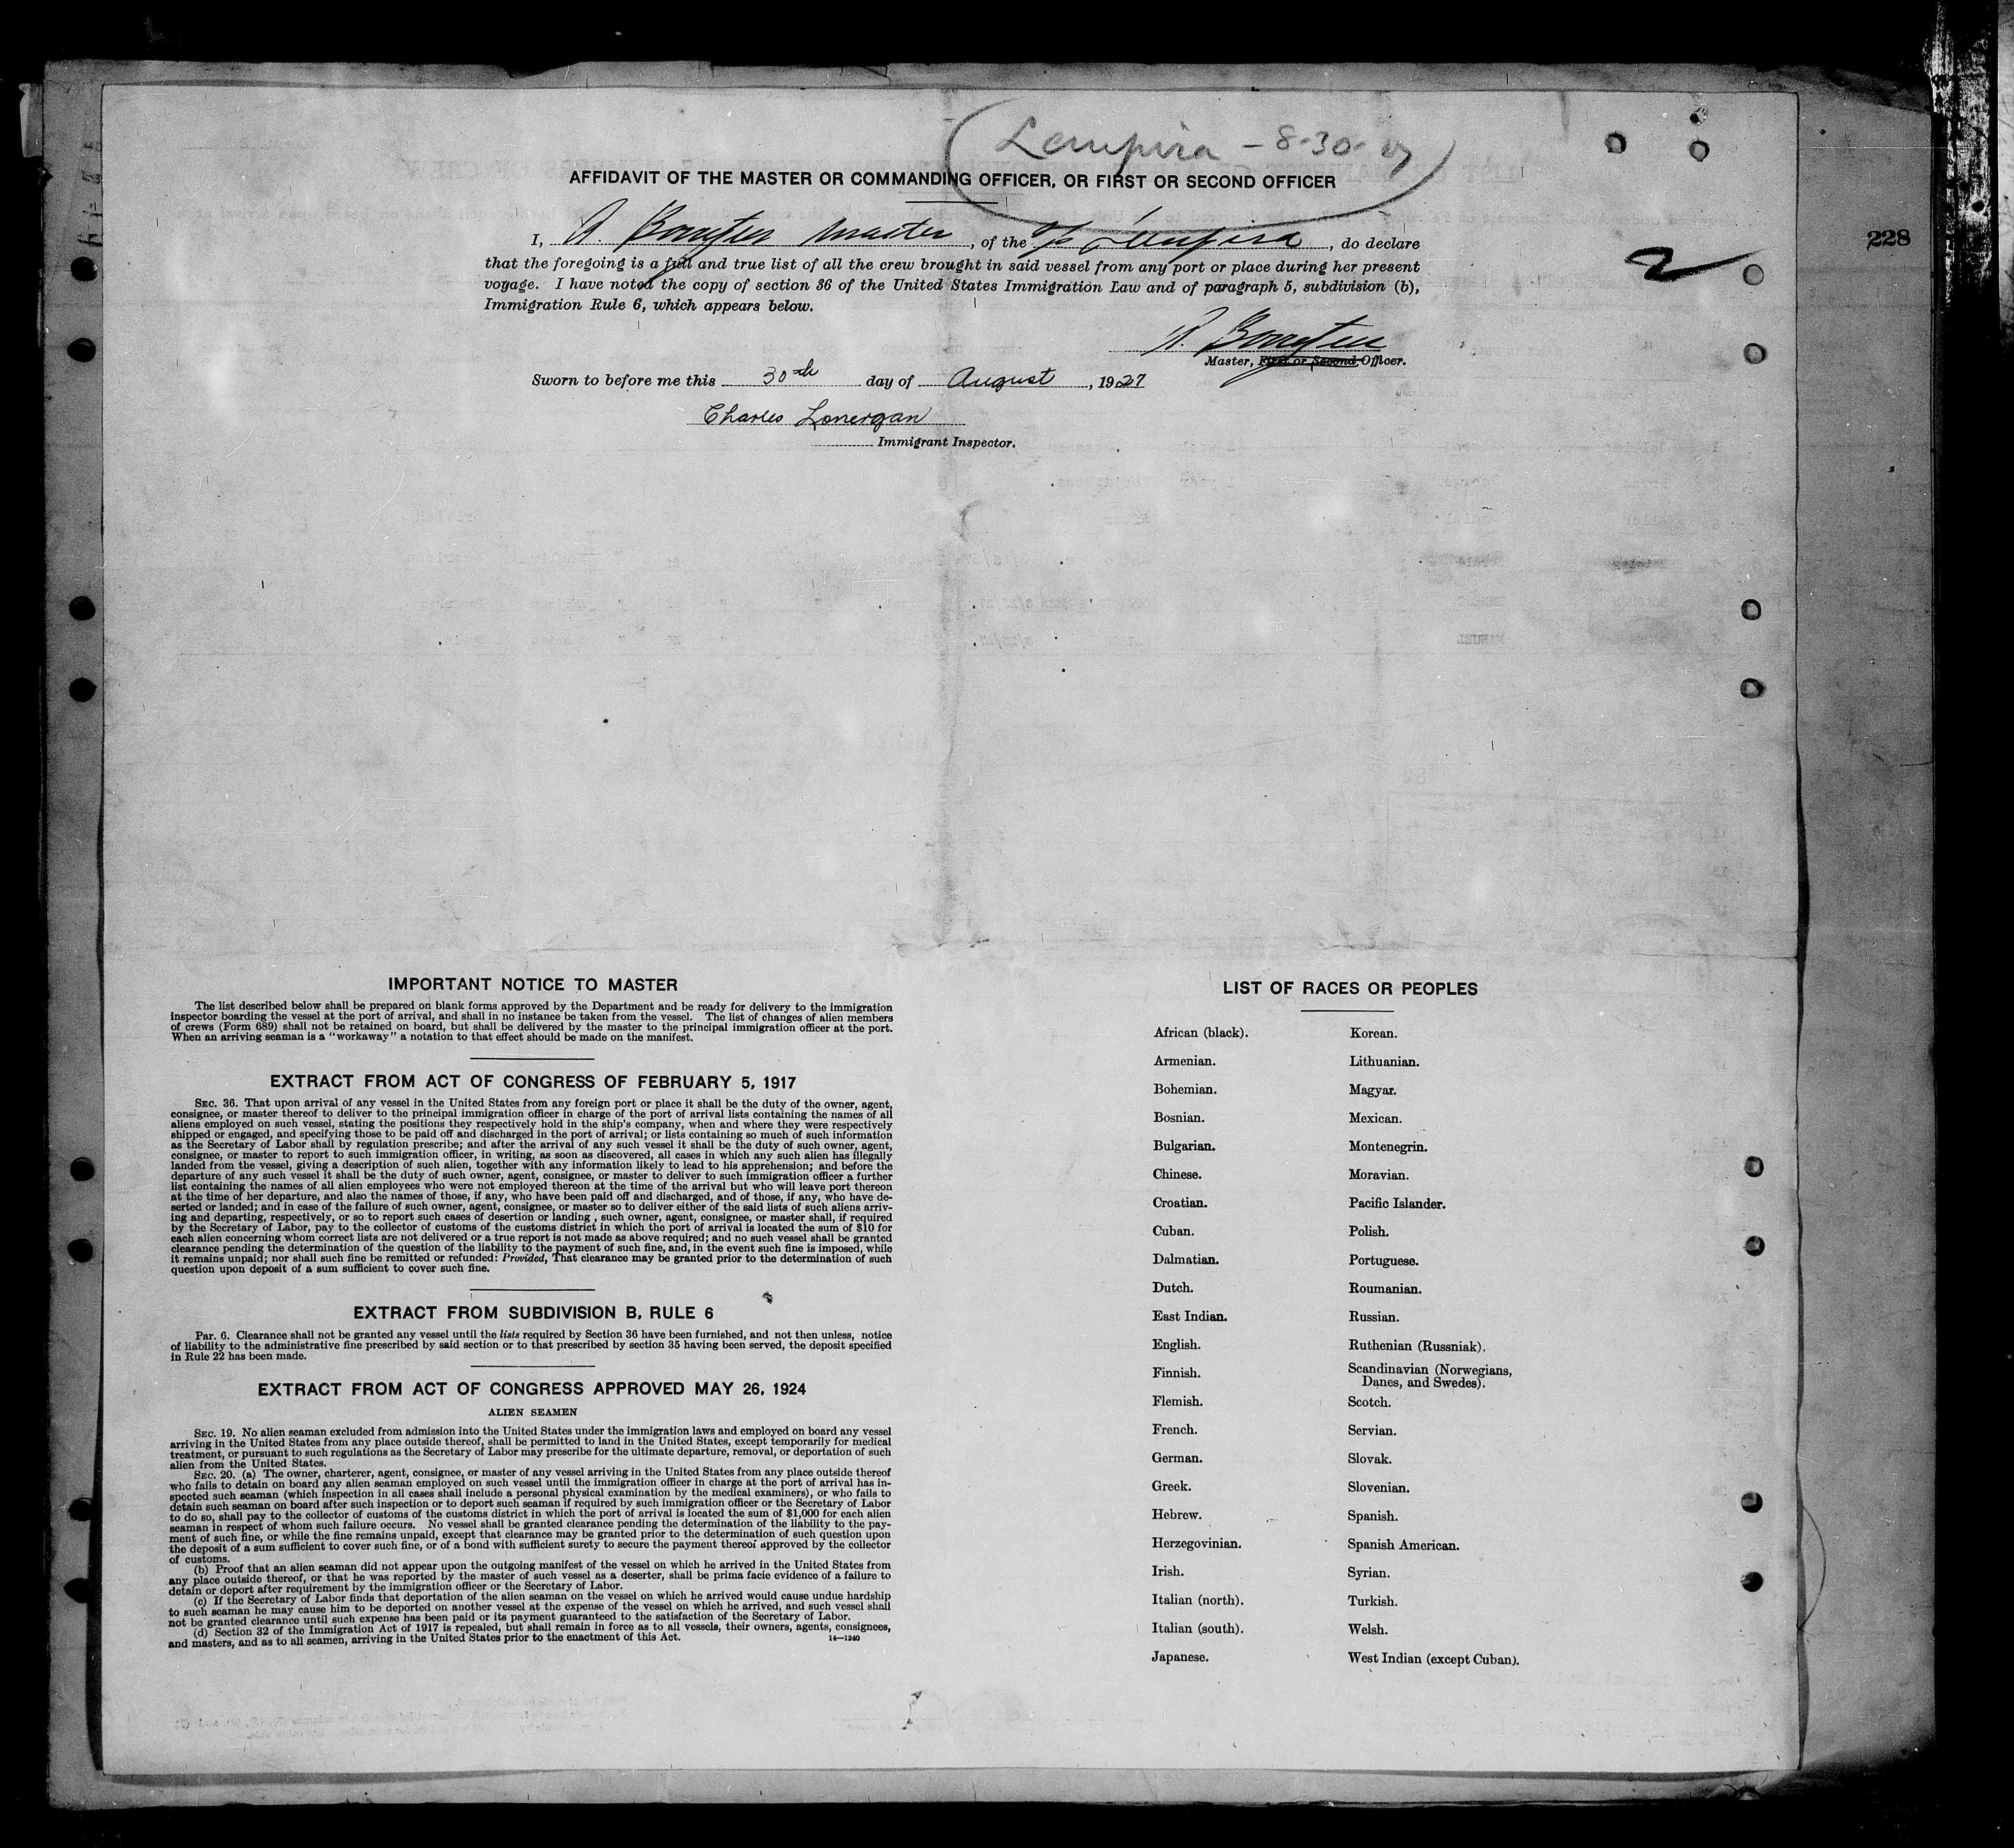 Lempira - 8-30-27
AFFIDAVIT OF THE MASTER OR COMMANDING OFFICER, OR FIRST OR SECOND OFFICER
I, Master, of the Lempira, do declare
that the foregoing is a full and true list of all the crew brought in said vessel from any port or place during her present
voyage. I have noted the copy of section 36 of the United States Immigration Law and of paragraph 5, subdivision (b),
Immigration Rule 6, which appears below.
Master, First or Second Officer.
Sworn to before me this 30th day of August, 1927
Charles Lonergan
Immigrant Inspector.
2
228
IMPORTANT NOTICE TO MASTER
The list described below shall be prepared on blank forms approved by the Department and be ready for delivery to the immigration
inspector boarding the vessel at the port of arrival, and shall in no instance be taken from the vessel. The list of changes of alien members
of crews (Form 689) shall not be retained on board, but shall be delivered by the master to the principal immigration officer at the port.
When an arriving seaman is a "workaway" a notation to that effect should be made on the manifest.
EXTRACT FROM ACT OF CONGRESS OF FEBRUARY 5, 1917
SEC. 36. That upon arrival of any vessel in the United States from any foreign port or place it shall be the duty of the owner, agent,
consignee, or master thereof to deliver to the principal immigration officer in charge of the port of arrival lists containing the names of all
aliens employed on such vessel, stating the positions they respectively hold in the ship's company, when and where they were respectively
shipped or engaged, and specifying those to be paid off and discharged in the port of arrival; or lists containing so much of such information
as the Secretary of Labor shall by regulation prescribe; and after the arrival of any such vessel it shall be the duty of such owner, agent,
consignee, or master to report to such immigration officer, in writing, as soon as discovered, all cases in which any such alien has illegally
landed from the vessel, giving a description of such alien, together with any information likely to lead to his apprehension; and before the
departure of any such vessel it shall be the duty of such owner, agent, consignee, or master to deliver to such immigration officer a further
list containing the names of all alien employees who were not employed thereon at the time of the arrival but who will leave port thereon
at the time of her departure, and also the names of those, if any, who have been paid off and discharged, and of those, if any, who have de-
serted or landed; and in case of the failure of such owner, agent, consignee, or master so to deliver either of the said lists of such aliens arriv-
ing and departing, respectively, or so to report such cases of desertion or landing, such owner, agent, consignee, or master shall, if required
by the Secretary of Labor, pay to the collector of customs of the customs district in which the port of arrival is located the sum of $10 for
each alien concerning whom correct lists are not delivered or a true report is not made as above required; and no such vessel shall be granted
clearance pending the determination of the question of the liability to the payment of such fine, and, in the event such fine is imposed, while
it remains unpaid; nor shall such fine be remitted or refunded: Provided, That clearance may be granted prior to the determination of such
question upon deposit of a sum sufficient to cover such fine.
EXTRACT FROM SUBDIVISION B, RULE 6
Par. 6. Clearance shall not be granted any vessel until the lists required by Section 36 have been furnished, and not then unless, notice
of liability to the administrative fine prescribed by said section or to that prescribed by section 35 having been served, the deposit specified
in Rule 22 has been made.
EXTRACT FROM ACT OF CONGRESS APPROVED MAY 26, 1924
ALIEN SEAMEN
SEC. 19. No alien seaman excluded from admission into the United States under the immigration laws and employed on board any vessel
arriving in the United States from any place outside thereof, shall be permitted to land in the United States, except temporarily for medical
treatment, or pursuant to such regulations as the Secretary of Labor may prescribe for the ultimate departure, removal, or deportation of such
alien from the United States.
SEC. 20. (a) The owner, charterer, agent, consignee, or master of any vessel arriving in the United States from any place outside thereof
who fails to detain on board any alien seaman employed on such vessel until the immigration officer in charge at the port of arrival has in-
spected such seaman (which inspection in all cases shall include a personal physical examination by the medical examiners), or who fails to
detain such seaman on board after such inspection or to deport such seaman if required by such immigration officer or the Secretary of Labor
to do so, shall pay to the collector of customs of the customs district in which the port of arrival is located the sum of $1,000 for each alien
seaman in respect of whom such failure occurs. No vessel shall be granted clearance pending the determination of the liability to the pay-
ment of such fine, or while the fine remains unpaid, except that clearance may be granted prior to the determination of such question upon
the deposit of a sum sufficient to cover such fine, or of a bond with sufficient surety to secure the payment thereof approved by the collector
of customs.
(b) Proof that an alien seaman did not appear upon the outgoing manifest of the vessel on which he arrived in the United States from
any place outside thereof, or that he was reported by the master of such vessel as a deserter, shall be prima facie evidence of a failure to
detain or deport after requirement by the immigration officer or the Secretary of Labor.
(c) If the Secretary of Labor finds that deportation of the alien seaman on the vessel on which he arrived would cause undue hardship
to such seaman he may cause him to be deported on another vessel at the expense of the vessel on which he arrived, and such vessel shall
not be granted clearance until such expense has been paid or its payment guaranteed to the satisfaction of the Secretary of Labor.
(d) Section 32 of the Immigration Act of 1917 is repealed, but shall remain in force as to all vessels, their owners, agents, consignees,
and masters, and as to all seamen, arriving in the United States prior to the enactment of this Act. 14—1240
LIST OF RACES OR PEOPLES
African (black). Korean.
Armenian. Lithuanian.
Bohemian. Magyar.
Bosnian. Mexican.
Bulgarian. Montenegrin.
Chinese. Moravian.
Croatian. Pacific Islander.
Cuban. Polish.
Dalmatian. Portuguese.
Dutch. Roumanian.
East Indian. Russian.
English. Ruthenian (Russniak).
Finnish. Scandinavian (Norwegians,
Danes, and Swedes).
Flemish. Scotch.
French. Servian.
German. Slovak.
Greek. Slovenian.
Hebrew. Spanish.
Herzegovinian. Spanish American.
Irish. Syrian.
Italian (north). Turkish.
Italian (south). Welsh.
Japanese. West Indian (except Cuban).